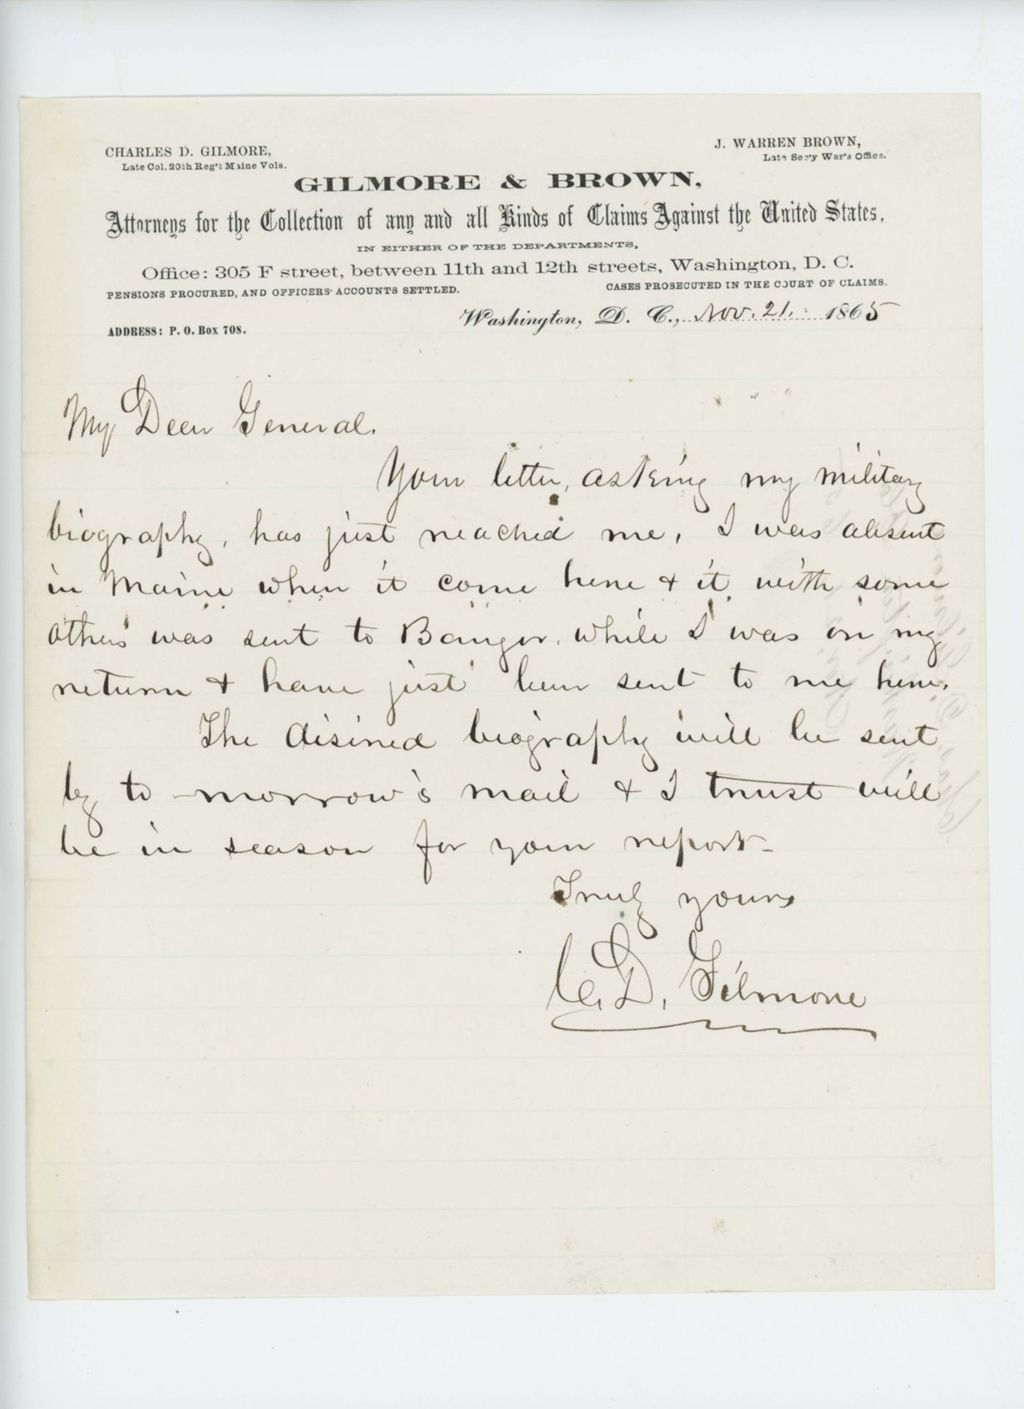 CHARLES D. GILMORE,
Late Col. 20th Reg't Maine Vols.
J. WARREN BROWN,
Late Sec'y War's Office.
GILMORE & BROWN,
Attorneys for the Collection of any and all Kinds of Claims Against the United States,
IN EITHER OF THE DEPARTMENTS,
Office: 305 F street, between 11th and 12th streets, Washington, D. C.
PENSIONS PROCURED, AND OFFICERS' ACCOUNTS SETTLED.
CASES PROSECUTED IN THE COURT OF CLAIMS.
ADDRESS: P. O. Box 708.
Washington, D. C., Nov. 21. 1865
My Dear General.
Your letter, asking my military
biography, has just reached me. I was absent
in Maine when it came here & it with some
others was sent to Bangor while I was on my
return & have just been sent to me here.
The desired biography will be sent
by to-morrow's mail & I trust will
be in season for your report-
Truly yours
C. D. Gilmore